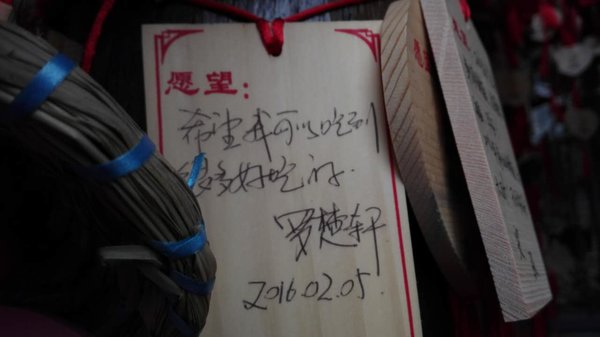 愿望:
希望我可以吃到
很多好吃的.
罗楚轩
2016.02.05.